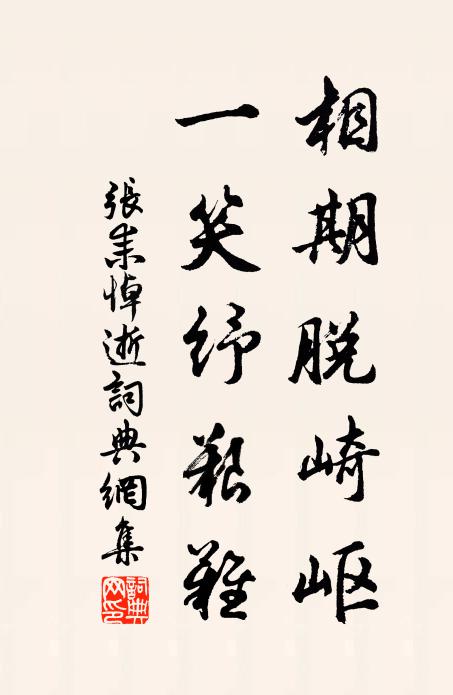 相期脱崎岖
一笑纾艰难
張耒悼逝詞典網集
詞典網印